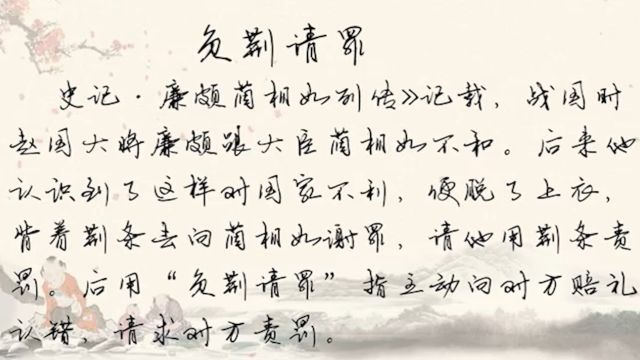 负荆请罪
史记·廉颇蔺相如列传》记载，战国时
赵国大将廉颇跟大臣蔺相如不和。后来他
认识到了这样对国家不利，便脱了上衣，
背着荆条去向蔺相如谢罪，请他用荆条责
罚。后用“负荆请罪”指主动向对方赔礼
认错，请求对方责罚。